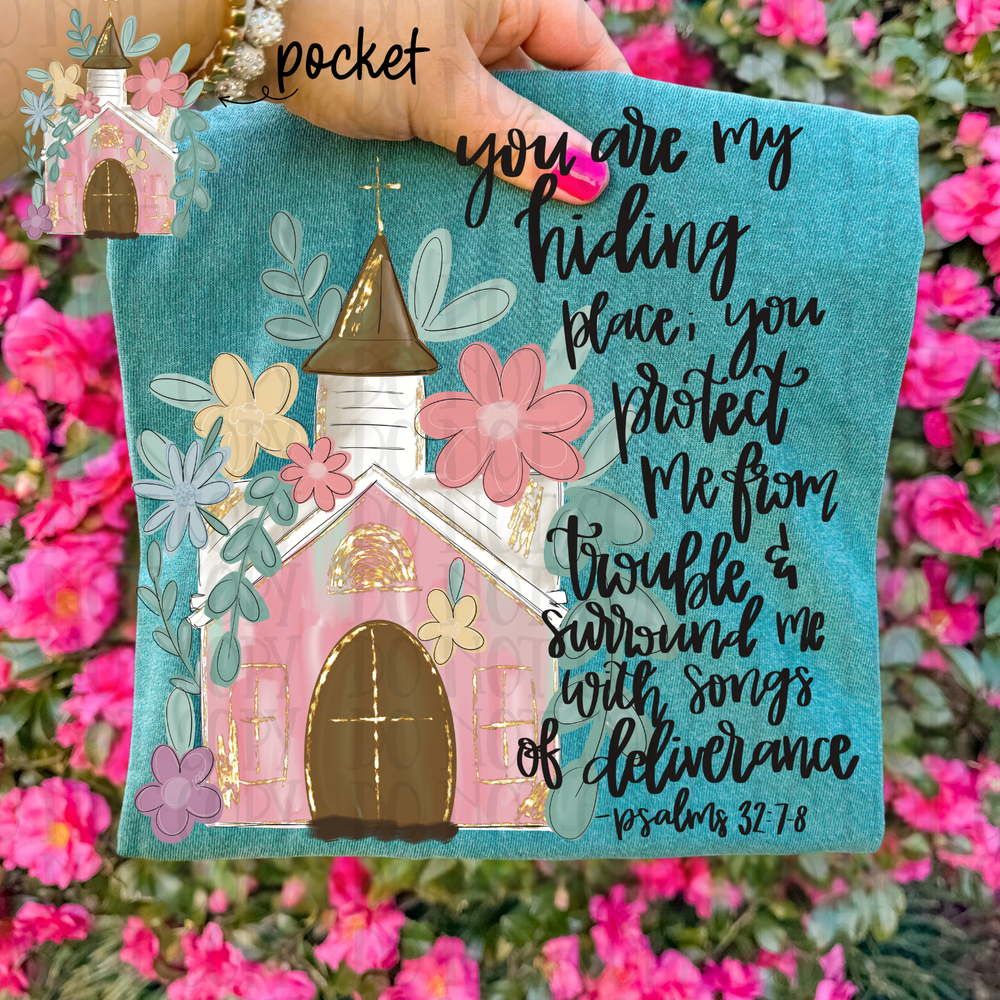 pocket
you are my
hiding
place; you
protect
me from
trouble &
surround me
with songs
of deliverance
-psalms 32:7-8
DO NOT
COPY